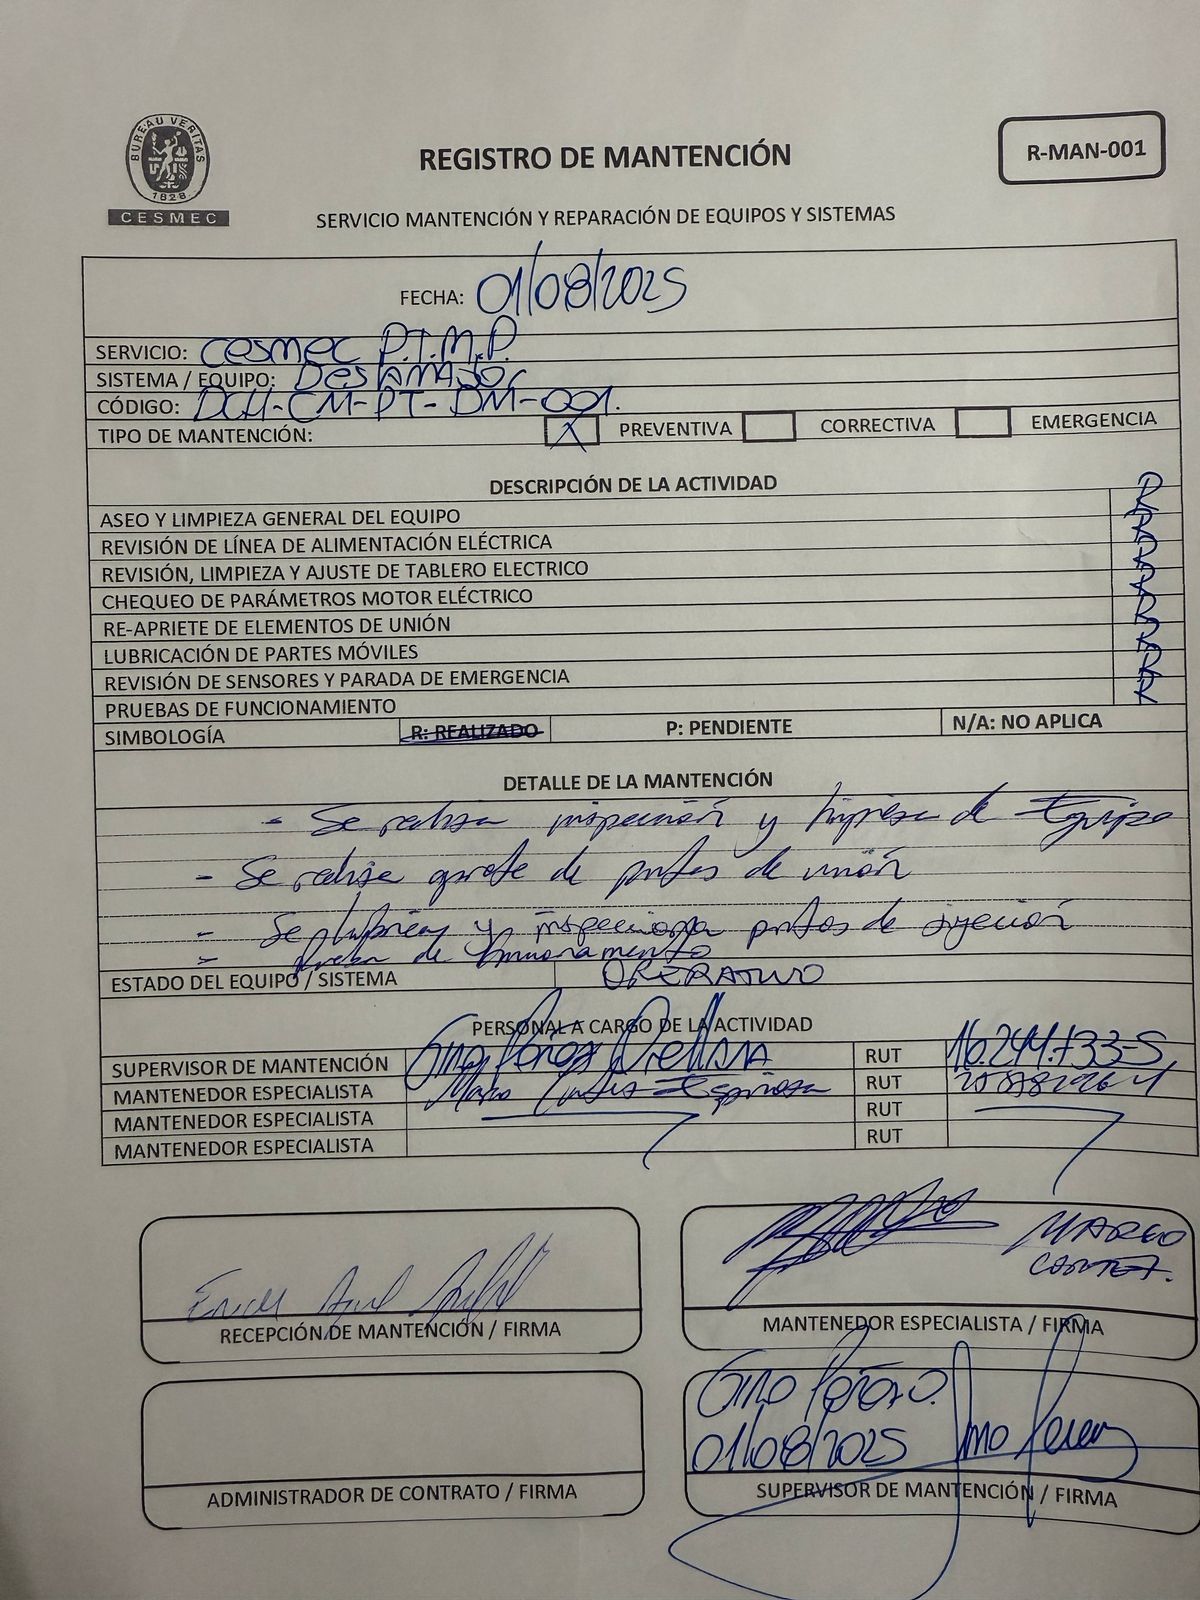 BUREAU VERITAS
1828
CESMEC
REGISTRO DE MANTENCIÓN
R-MAN-001
SERVICIO MANTENCIÓN Y REPARACIÓN DE EQUIPOS Y SISTEMAS
FECHA: 01/08/2025
SERVICIO: Cesmec P.T.M.P.
SISTEMA / EQUIPO: Deslamador
CÓDIGO: DCH-CM-PT-DM-001.
TIPO DE MANTENCIÓN: X PREVENTIVA CORRECTIVA EMERGENCIA
DESCRIPCIÓN DE LA ACTIVIDAD
ASEO Y LIMPIEZA GENERAL DEL EQUIPO R
REVISIÓN DE LÍNEA DE ALIMENTACIÓN ELÉCTRICA R
REVISIÓN, LIMPIEZA Y AJUSTE DE TABLERO ELECTRICO R
CHEQUEO DE PARÁMETROS MOTOR ELÉCTRICO R
RE-APRIETE DE ELEMENTOS DE UNIÓN R
LUBRICACIÓN DE PARTES MÓVILES R
REVISIÓN DE SENSORES Y PARADA DE EMERGENCIA R
PRUEBAS DE FUNCIONAMIENTO R
SIMBOLOGÍA R: REALIZADO P: PENDIENTE N/A: NO APLICA
DETALLE DE LA MANTENCIÓN
- Se realiza inspección y limpieza de Equipo
- Se realiza apriete de puntos de unión
- Se lubrica y inspecciona puntos de sujeción
- Prueba de funcionamiento
ESTADO DEL EQUIPO / SISTEMA OPERATIVO
PERSONAL A CARGO DE LA ACTIVIDAD
SUPERVISOR DE MANTENCIÓN Gino Pérez RUT 16.244.733-5
MANTENEDOR ESPECIALISTA Marco Cortes Espinosa RUT
MANTENEDOR ESPECIALISTA RUT
MANTENEDOR ESPECIALISTA RUT
Erick
RECEPCIÓN DE MANTENCIÓN / FIRMA
MARCO
CORTEZ.
MANTENEDOR ESPECIALISTA / FIRMA
ADMINISTRADOR DE CONTRATO / FIRMA
Gino Pérez O.
01/08/2025 Gino Perez
SUPERVISOR DE MANTENCIÓN / FIRMA